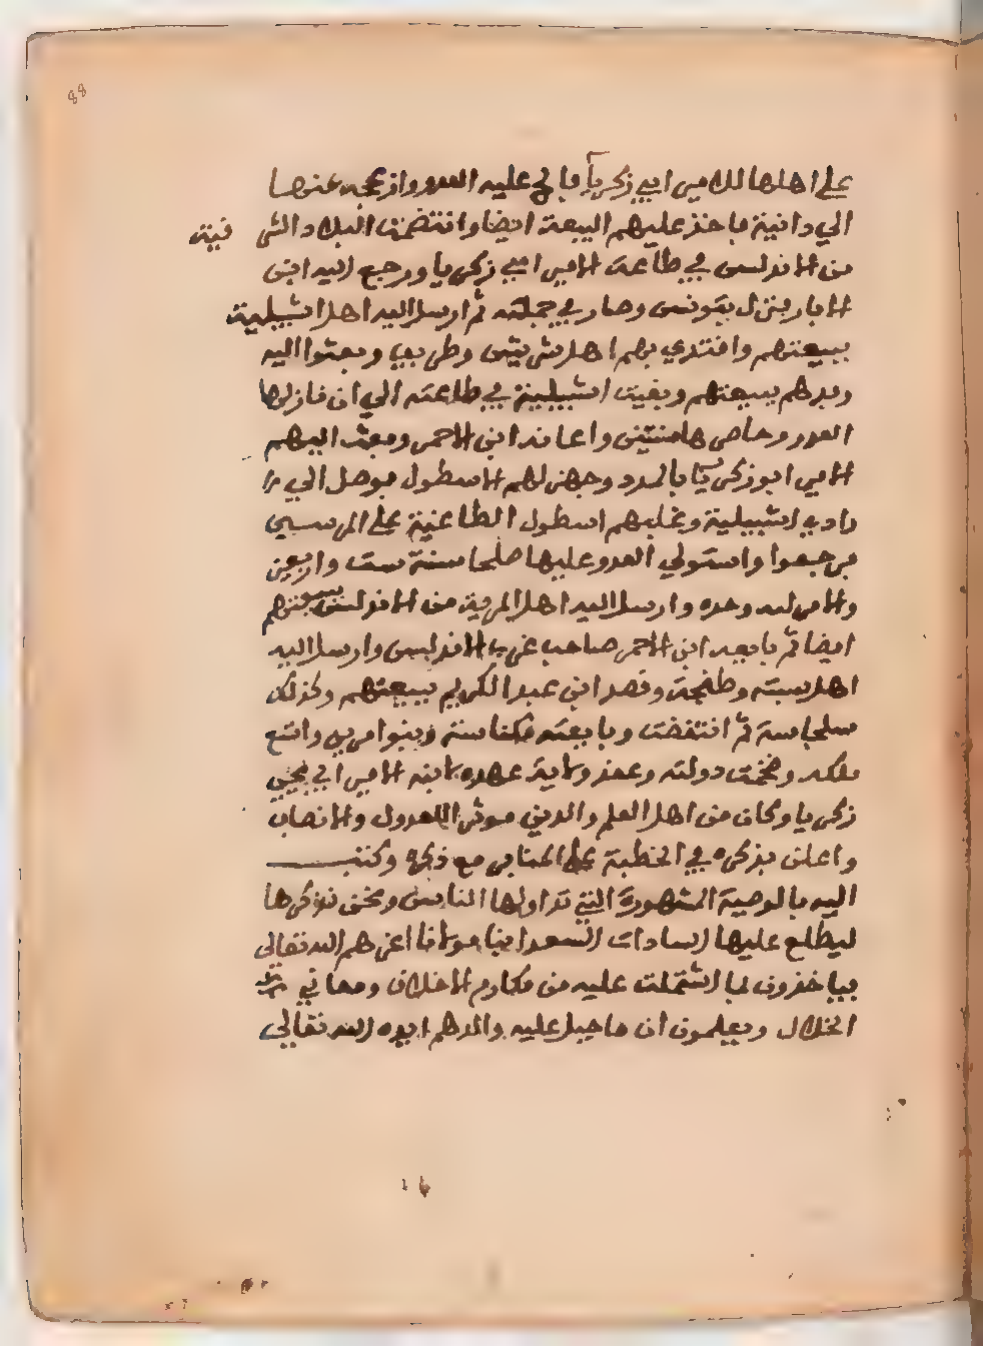 88
على اهلها للامير ابي زكريا فالح عليه العدو وازعجه عنها
الى دانية فاخذ عليهم البيعة ايضا وانتضمت البلاد الشرقية
من الاندلس في طاعة الامير ابي زكريا ورجع اليه ابن
الابار ينزل بتونس وصار في جملته ثم ارسل اليه اهل اشبيلية
ببيعتهم واقتدي بهم اهل شريش وطريف وبعثوا اليه
وفدهم ببيعتهم وبقيت اشبيلية في طاعته الي ان نازلها
العدو وحاصرها سنتين واعانه ابن الاحمر وبعث اليهم
الامير ابو زكريا بالمدد وجهز لهم الاسطول فوصل الي
وادي اشبيلية وغلبهم اسطول الطاغية على المرسي
فرجعوا واستولي العدو عليها صلحا سنة ست واربعين
والامر لله وحده وارسل اليه اهل المرية من الاندلس ببيعتهم
ايضا ثم بايعه ابن الاحمر صاحب غرب الاندلس وارسل اليه
اهل سبتة وطنجة وقصر ابن عبد الكريم ببيعتهم وكذلك
سلجماسة ثم انتفضت وبايعته مكناسة وبنوا مرين واتسع
ملكه وضخمت دولته وعقد ولاية عهده لابنه الامير ابي يحيي
زكريا وكان من اهل العلم والدين موثرا للعدول والانصاف
واعلن بذكره في الخطبة على المنابر مع ذكره وكتب
اليه بالوصية المشهورة التي تداولها الناس ونحن نوكرها
ليطلع عليها السادات السعدا ابنا مولانا اعزهم الله تعالى
فياخذون بما اشتملت عليه من مكارم الاخلاق ومعاني
الخلال ويعلمون ان ما جبل عليه والدهم ايده الله تعالي